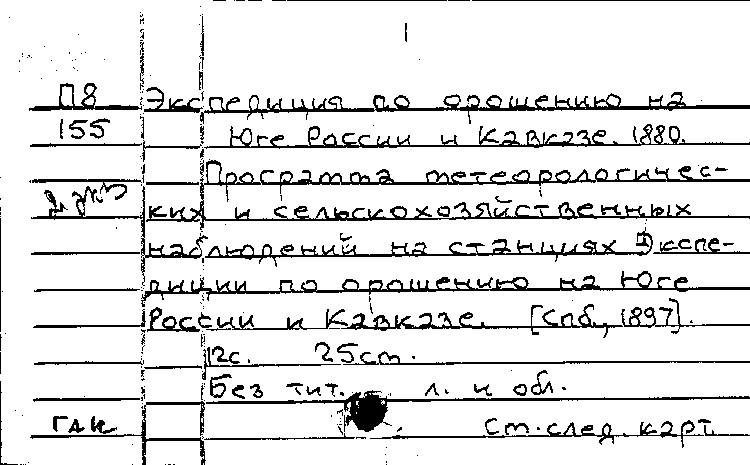 1
П8 Экспедиция по орошению на
155 Юге России и Кавказе. 1880.
Программа метеорологичес-
2 экз ких и сельскохозяйственных
наблюдений на станциях Экспе-
диции по орошению на Юге
России и Кавказе. [Спб., 1897].
12с. 25см.
Без тит. л. и обл.
ГАК См. след. карт.